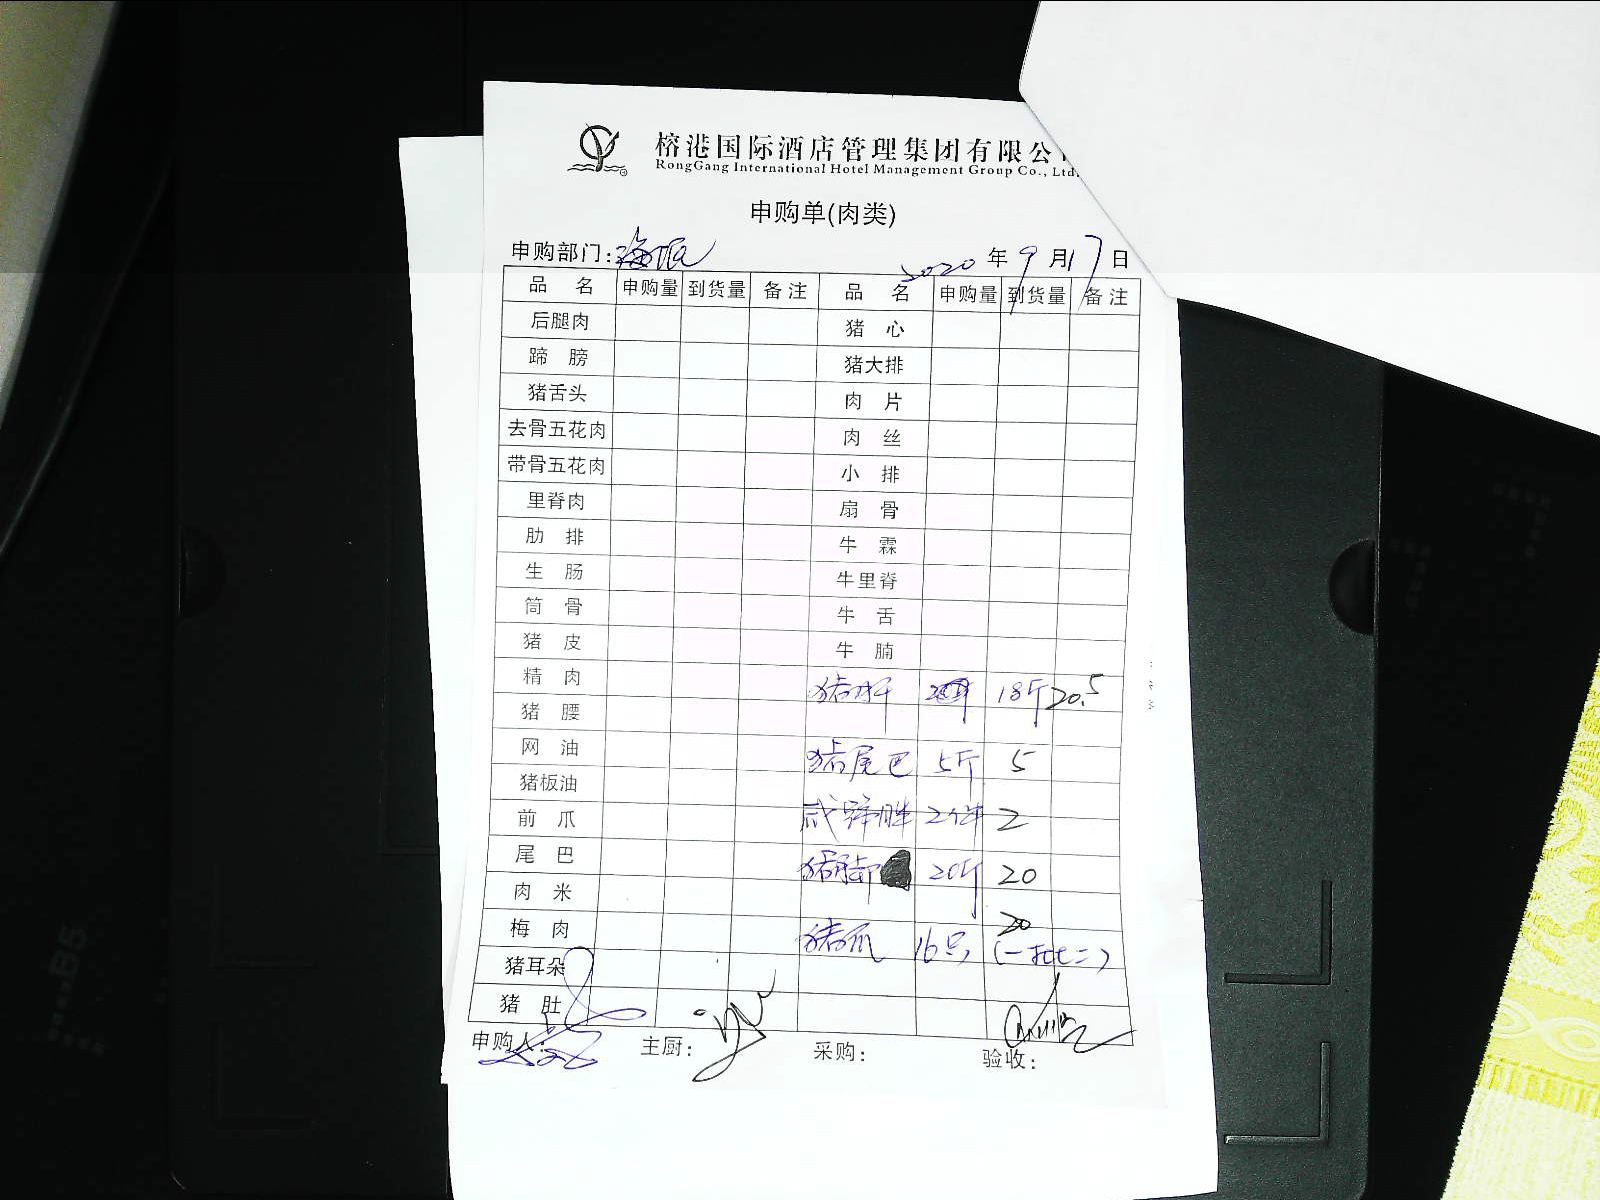 榕港国际酒店管理集团有限公
RongGang International Hotel Management Group Co., Ltd.
申购单(肉类)
申购部门: 2020 年 9 月 17 日
品 名 申购量 到货量 备注 品 名 申购量 到货量 备注
后腿肉 猪 心
蹄 膀 猪大排
猪舌头 肉 片
去骨五花肉 肉 丝
带骨五花肉 小 排
里脊肉 扇 骨
肋 排 牛 霖
生 肠 牛里脊
筒 骨 牛 舌
猪 皮 牛 腩
精 肉 猪 18斤 20.5
猪 腰
网 油 猪尾巴 5斤 5
猪板油
前 爪 2 2
尾 巴 猪脚 20斤 20
肉 米
梅 肉 猪爪 16只 20 (一批二)
猪耳朵
猪 肚
申购人: 主厨: 采购: 验收:
B5